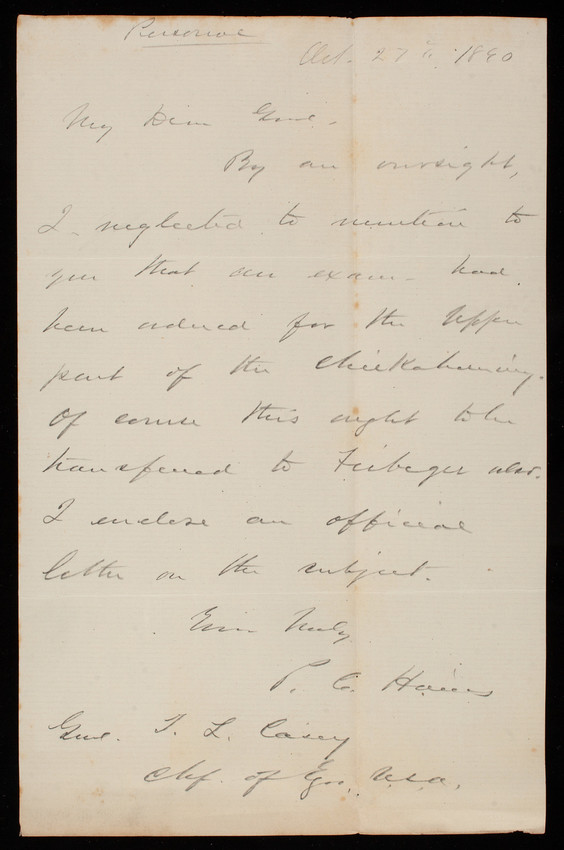 Personal
Oct. 27th 1890
My Dear Genl.
By an oversight,
I neglected to mention to
you that an exam- had
been ordered for the Upper
part of the Chickahominy.
Of course this ought to be
transferred to Fiebeger also.
I enclose an official
letter on the subject.
Yours truly
P. C. Hains
Genl. T. L. Casey
Chf. of Eng., U.S.A.